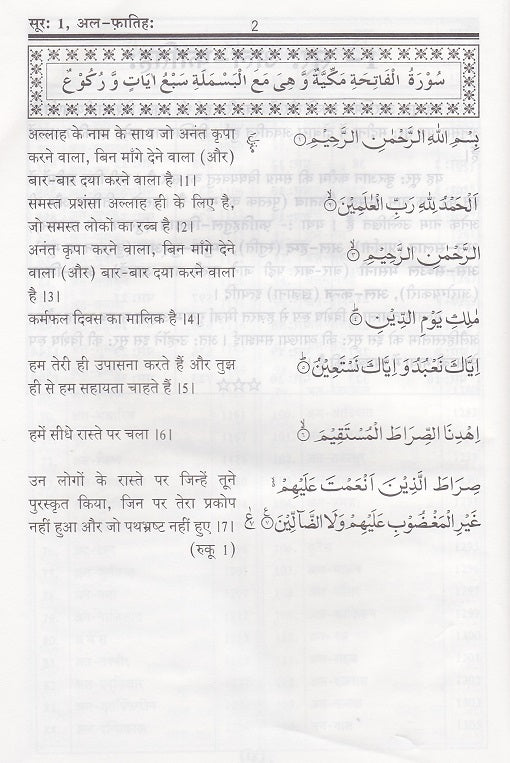 सूर: 1, अल-फ़ातिह:
2
سُوْرَةُ الْفَاتِحَةِ مَكِّيَّةٌ وَّ هِیَ مَعَ الْبَسْمَلَةِ سَبْعُ اٰيَاتٍ وَّ رُكُوْعٌ
अल्लाह के नाम के साथ जो अनंत कृपा
करने वाला, बिन माँगे देने वाला (और)
बार-बार दया करने वाला है |1|
بِسْمِ اللّٰهِ الرَّحْمٰنِ الرَّحِيْمِ ۝۱
समस्त प्रशंसा अल्लाह ही के लिए है,
जो समस्त लोकों का रब्ब है |2|
اَلْحَمْدُ لِلّٰهِ رَبِّ الْعٰلَمِيْنَ ۝۲
अनंत कृपा करने वाला, बिन माँगे देने
वाला (और) बार-बार दया करने वाला
है |3|
الرَّحْمٰنِ الرَّحِيْمِ ۝۳
कर्मफल दिवस का मालिक है |4|
مٰلِكِ يَوْمِ الدِّيْنِ ۝۴
हम तेरी ही उपासना करते हैं और तुझ
ही से हम सहायता चाहते हैं |5|
اِيَّاكَ نَعْبُدُ وَ اِيَّاكَ نَسْتَعِيْنُ ۝۵
हमें सीधे रास्ते पर चला |6|
اِهْدِنَا الصِّرَاطَ الْمُسْتَقِيْمَ ۝۶
उन लोगों के रास्ते पर जिन्हें तूने
पुरस्कृत किया, जिन पर तेरा प्रकोप
नहीं हुआ और जो पथभ्रष्ट नहीं हुए |7|
(रुकू 1)
صِرَاطَ الَّذِيْنَ اَنْعَمْتَ عَلَيْهِمْ
غَيْرِ الْمَغْضُوْبِ عَلَيْهِمْ وَلَا الضَّآلِّيْنَ ۝۷ ع